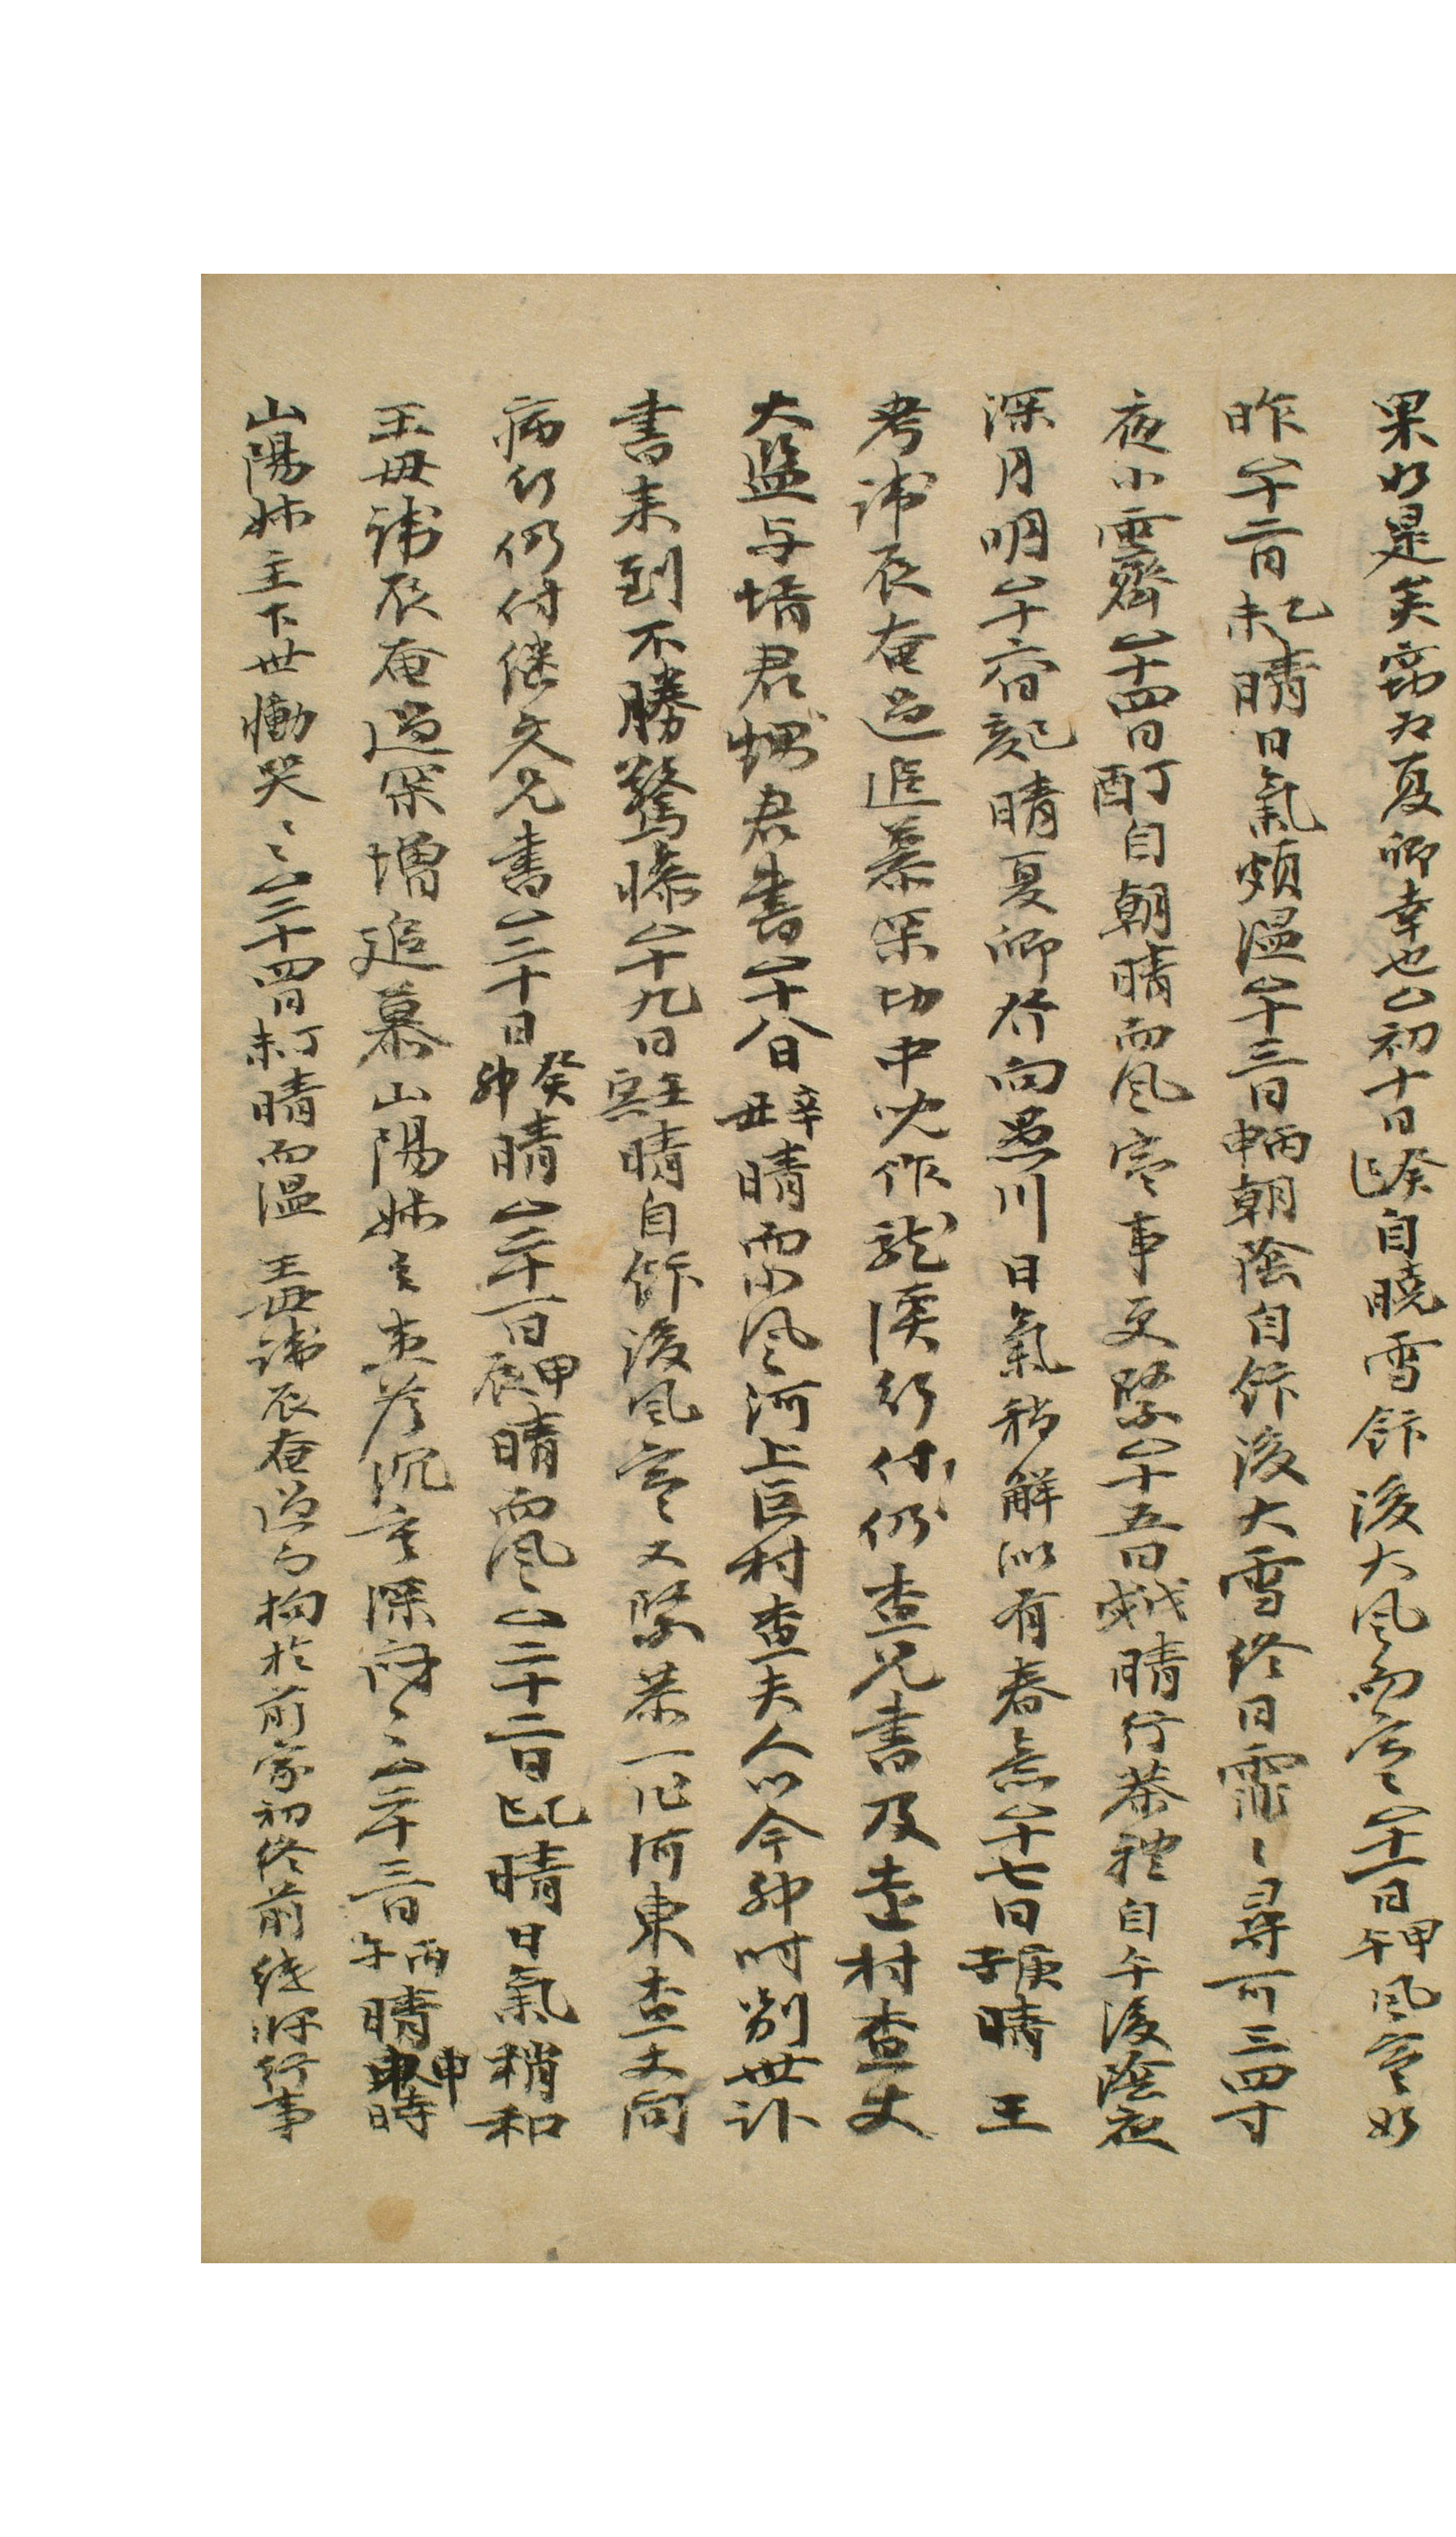 果如是矣竊爲夏卿幸也△初十日癸巳自曉雪餘後大風而寒△十一日甲午風寒如
昨△十二日乙未晴日氣頗溫△十三日丙申朝陰自餘後大雪終日霏〻尋可三四寸
夜小雪霽△十四日丁酉自朝晴而風寒事更緊△十五日戊戌晴行茶禮自午後陰夜
深月明△十六日己亥晴夏卿作向愚川日氣稍解似有春意△十七日庚子晴 王
考諱辰奄過追慕采切中呪作龍溪行付仍査兄書及 村査丈
大監与壻君甥君書△十八日辛丑晴而小風河上巨村査夫人以今卯時別世訃
書來到不勝驚慘△十九日壬寅晴自餘後風寒又緊茶一 河東査丈向
病行仍付继文兄書△二十日癸卯晴△二十一日甲辰晴而風△二十二日乙巳晴日氣稍和
王母諱辰奄過采增追慕山陽姉主 沉 深悶〻△二十三日丙午晴申時
山陽姉主下世慟哭〻△二十四日丁未晴而溫 王母諱辰奄過而拘於前家初終前 行事